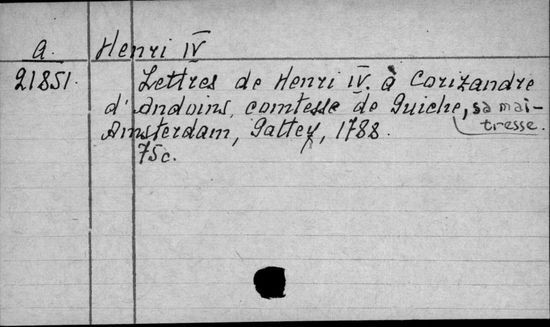 a. Henri IV
21851. Lettres de Henri IV. à Corizandre
d'Andoins, comtesse de Guiche, sa maî-
tresse.
Amsterdam, Gattey, 1788.
75c.